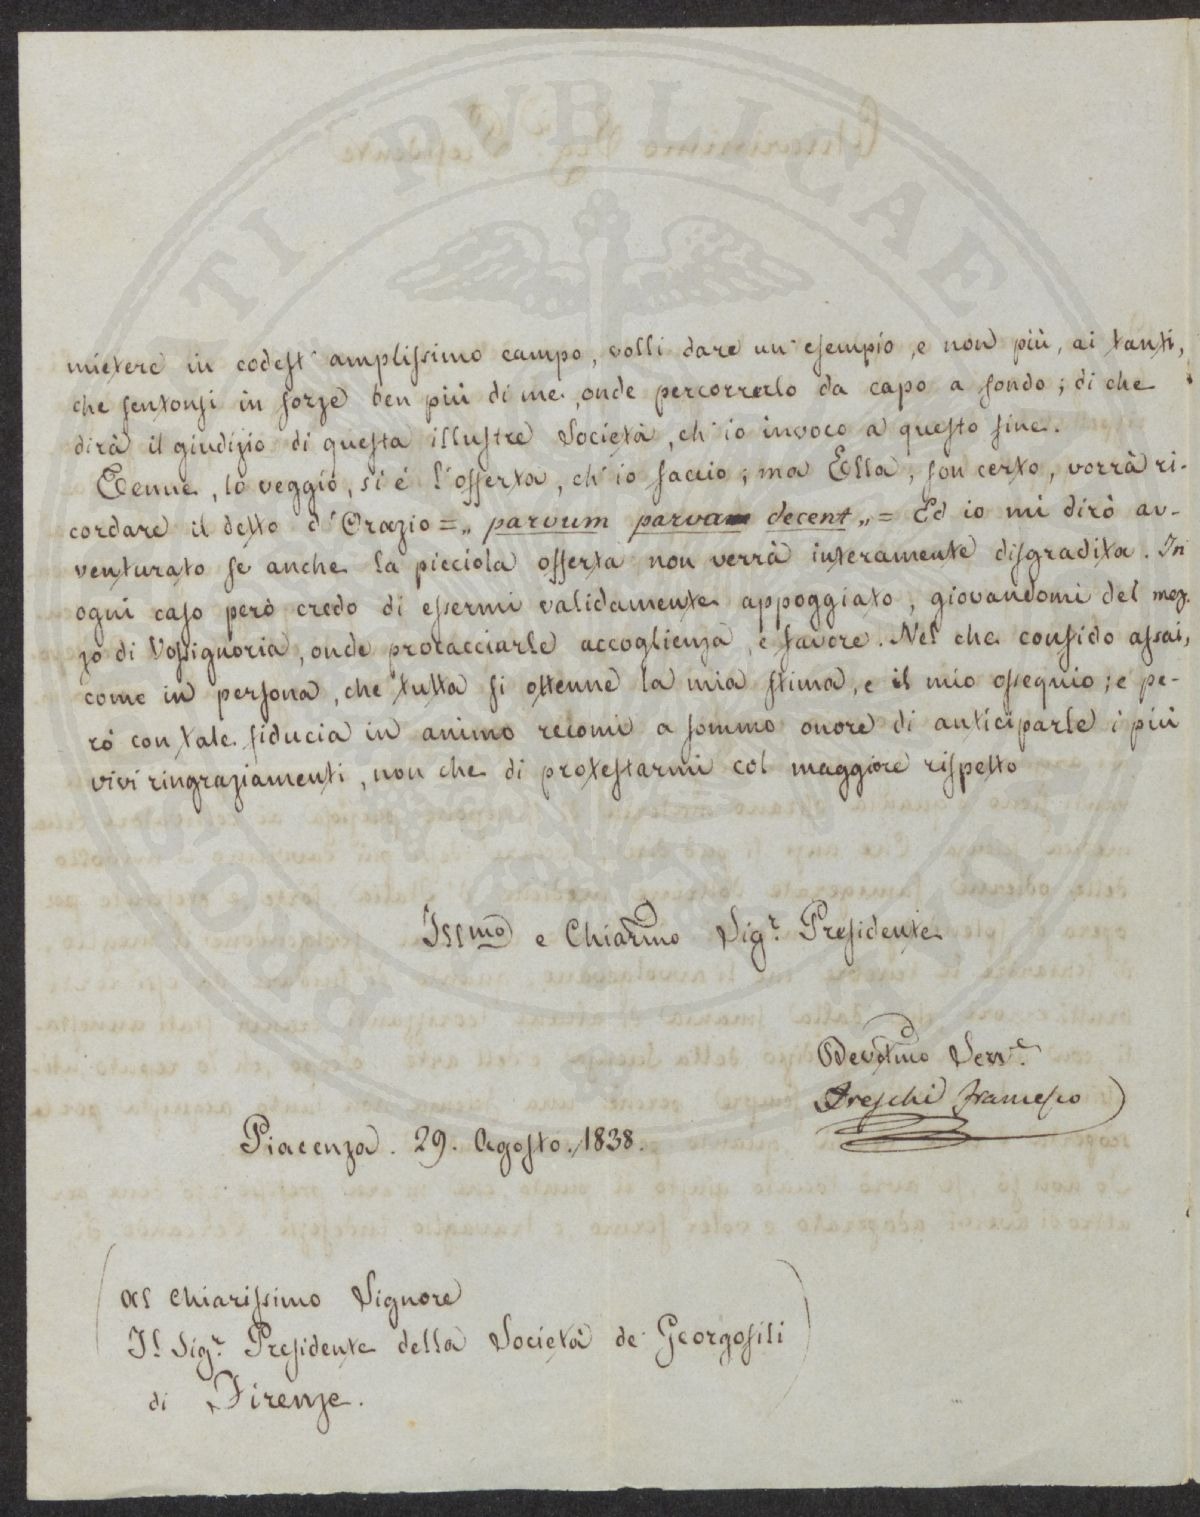 mietere in codest' amplissimo campo, volli dare un' esempio, e non più, ai tanti,
che sentonsi in forze ben più di me, onde percorrerlo da capo a fondo; di che
dirà il giudizio di questa illustre Società, ch' io invoco a questo fine.
Tenue, lo veggio, si è l'offerta, ch' io faccio; ma Ella, son certo, vorrà ri-
cordare il detto d'Orazio = „ parvum parva decent „ = Ed io mi dirò av-
venturato se anche la picciola offerta non verrà interamente disgradita. In
ogni caso però credo di essermi validamente appoggiato, giovandomi del mez-
zo di Vossignoria, onde procacciarle accoglienza, e favore. Nel che confido assai,
come in persona, che tutta si ottenne la mia stima, e il mio ossequio; e pe-
rò con tale fiducia in animo recomi a sommo onore di anticiparle i più
vivi ringraziamenti, non che di protestarmi col maggiore rispetto
Issmo e Chiarmo Sigr. Presidente
Devotmo Servre
Freschi Francesco
Piacenza. 29. Agosto. 1838.
Al Chiarissimo Signore
Il Sigr. Presidente della Società de' Georgofili
di Firenze.
PROSPERITATI PVBLICAE